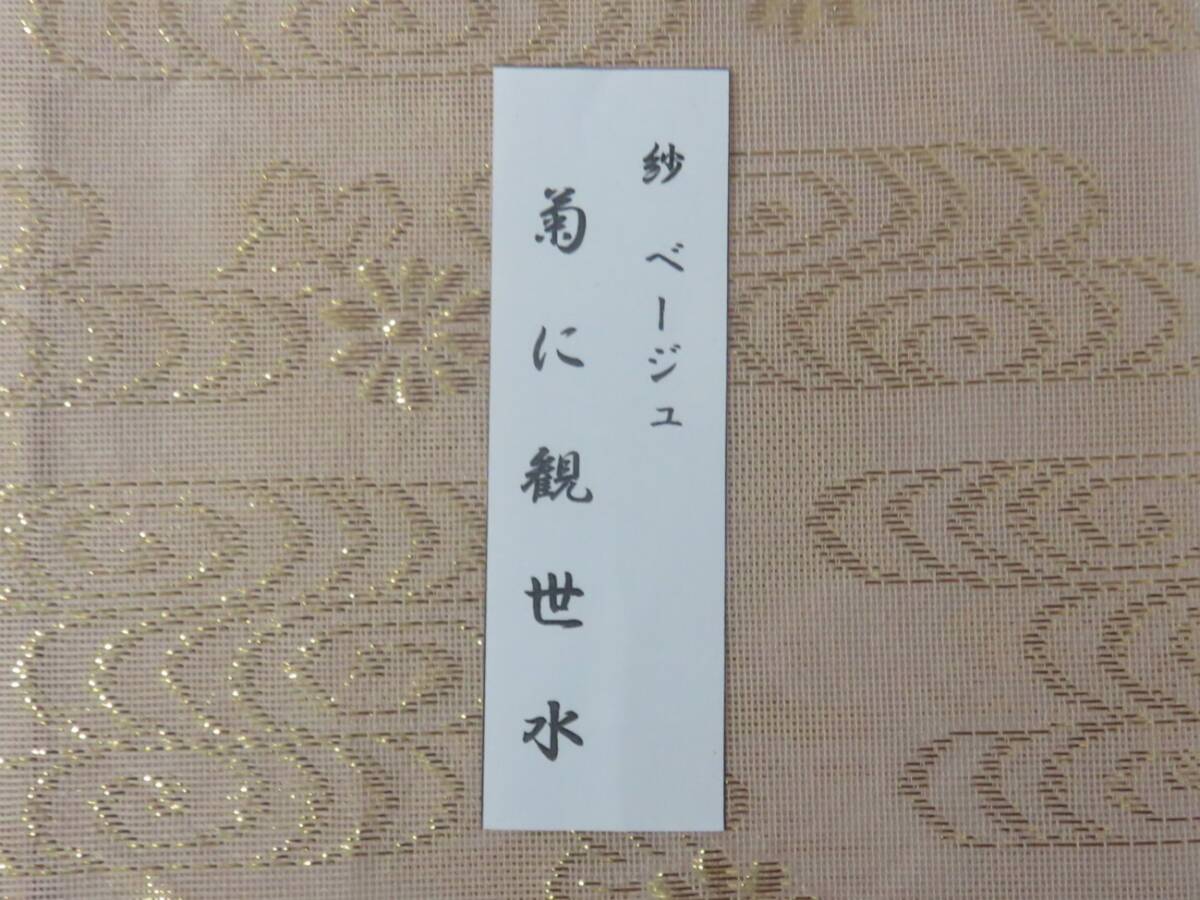 紗 ベージュ
菊に観世水